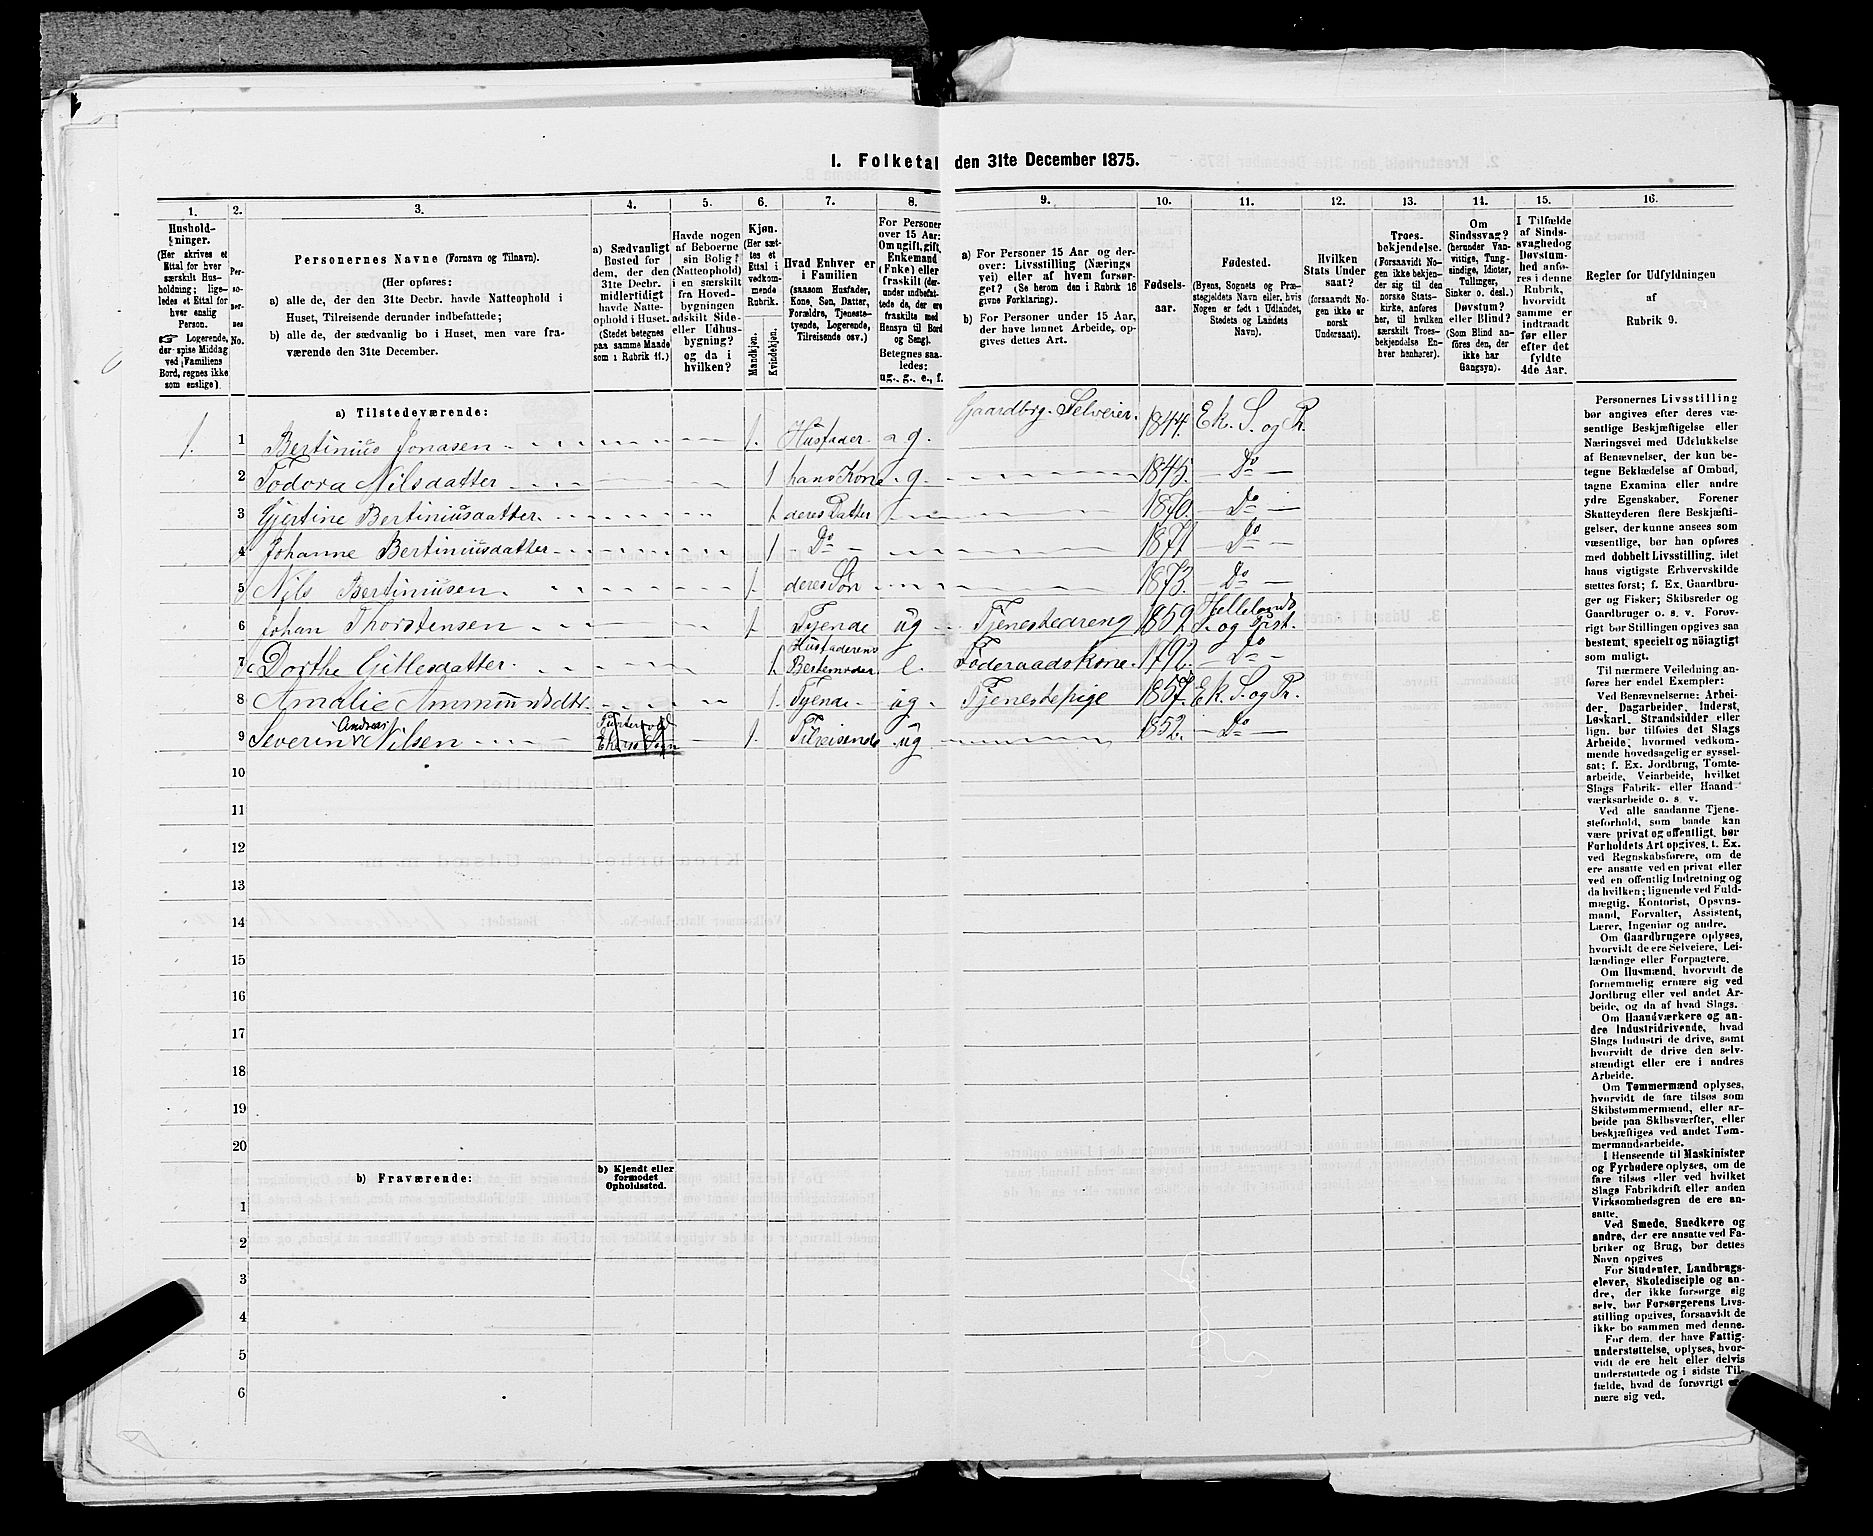 I. Folketal den 31te December 1875.
1. 2. 3. 4. 5. 6. 7. 8. 9. 10. 11. 12. 13. 14. 15. 16.
Hushold-
ninger.
(Her skrives et
Ettal for hver
særskilt Hus-
holdning; lige-
ledes et Ettal for
hver enslig
Person.
☞ Logerende,
der spise Middag
ved Familiens
Bord, regnes ikke
som enslige).
Per-
so-
ner-
nes
No.
Personernes Navne (Fornavn og Tilnavn).
(Her opføres:
a) alle de, der den 31te Decbr. havde Natteophold i
Huset, Tilreisende derunder indbefattede;
b) alle de, der sædvanlig bo i Huset, men vare fra-
værende den 31te December.
a) Sædvanligt
Bosted for
dem, der den
31te Decbr.
midlertidigt
havde Natte-
ophold i Huset.
(Stedet betegnes
paa samme Maade
som i Rubrik 11.)
Havde nogen
af Beboerne
sin Bolig
(Natteophold)
i en særskilt
fra Hoved-
bygningen
adskilt Side-
eller Udhus-
bygning?
og da i
hvilken?
Kjøn.
(Her sæt-
tes et
Ettal i
vedkom-
mende
Rubrik.
Mandkjøn.
Kvindekjøn.
Hvad Enhver er
i Familien
(saasom Husfader,
Kone, Søn, Datter,
Forældre, Tjeneste-
tyende, Logerende,
Tilreisende osv.)
For Personer
over 15 Aar:
Om ugift, gift,
Enkemand
(Enke) eller
fraskilt (der-
under indbefat-
tede de, der ere
fraskilte med
Hensyn til Bord
og Seng).
Betegnes saa-
ledes:
ug., g., e., f.
a) For Personer 15 Aar og der-
over: Livsstilling (Nærings
vei) eller af hvem forsør-
get? (Se herom den i Rubrik 16
givne Forklaring).
b) For Personer under 15 Aar,
der have lønnet Arbeide, op-
gives dettes Art.
Fødsels-
aar.
Fødested.
(Byens, Sognets og Præ-
stegjeldets Navn eller, hvis
Nogen er født i Udlandet,
Stedets og Landets
Navn).
Hvilken
Stats Under
saat?
(forsaavidt No-
gen ikke er
norsk
Undersaat).
Troes-
bekjendelse.
(Forsaavidt No-
gen ikke bekjen-
der sig til den
norske Stats-
kirke, anføres
her, til hvilken
særskilt Troes-
bekjendelse En-
hver henhører).
Om
Sindssvag?
(herunder Van-
vittige, Tung-
sindige, Idioter,
Tullinger,
Sinker o. desl.)
Døvstum?
eller Blind?
(Som Blind an-
føres den, der
ikke har
Gangsyn).
I Tilfælde
af Sinds-
svaghed og
Døvstum-
hed anfø-
res i denne
Rubrik,
hvorvidt
samme er
indtraadt
før eller
efter det
fyldte
4de Aar.
Regler for Udfyldningen
af
Rubrik 9.
a) Tilstedeværende:
1. 1 Bertinius Jonasen 1. Husfader g. Gaardbrg. Selveier. 1844. Ek. S. og Pr.
2 Todora Nilsdatter 1 hans Kone g. 1845. Do
3 Gjertine Bertiniusdatter 1 deres Datter 1870. Do
4 Johanne Bertiniusdatter 1 Do 1871 Do
5 Nils Bertiniusen 1. deres Søn 1873. Do
6 Johan Thorstensen 1. Tyende ug Tjenestedreng 1859 Hellelands S. og Pr
7 Dorthe Gitlesdatter 1. Husfaderens Bestemoder e. Føderaadskone. 1792. Do
8 Amalie 1. Tyende ug Tjenestepige 1857. Ek. S. og Pr.
9 Severin Andreas Nilsen 1. Tilreisende ug 1852. Do
10
11
12
13
14
15
16
17
18
19
20
b) Fraværende:
b) Kjendt eller
formodet
Opholdssted.
1
2
3
4
5
6
Personernes Livsstilling
bør angives efter deres væ-
sentlige Beskjæftigelse eller
Næringsvei med Udelukkelse
af Benævnelser, der kun be-
tegne Beklædelse af Ombud,
tagne Examina eller andre
ydre Egenskaber. Forener
Skatteyderen flere Beskjæfti-
gelser, der kunne ansees som
væsentlige, bør han opføres
med dobbelt Livsstilling, idet
hans vigtigste Erhvervskilde
sættes først; f. Ex. Gaardbru-
ger og Fisker; Skibsreder og
Gaardbruger o. s. v. Forøv-
rigt bør Stillingen opgives saa
bestemt, specielt og nøiagtigt
som muligt.
Til nærmere Veiledning an-
føres her endel Exempler:
Ved Benævnelserne: Arbei-
der, Dagarbeider, Inderst,
Løskarl, Strandsidder eller
lign. bør tilføies det Slags
Arbeide, hvormed vedkom-
mende hovedsagelig er syssel-
sat; f. Ex. Jordbrug, Tomte-
arbeide, Veiarbeide, hvilket
Slags Fabrik- eller Haand-
værksarbeide o. s. v.
Ved alle saadanne Tjene-
steforhold, som baade kan
være privat og offentligt, bør
Forholdets Art opgives, t. Ex.
ved Regnskabsførere, om de
ere ansatte ved en privat eller
ved en offentlig Indretning og
da hvilken; lignende ved Fuld-
mægtig, Kontorist, Opsyns-
mand, Forvalter, Assistent,
Lærer, Ingeniør og andre.
Om Gaardbrugere oplyses,
hvorvidt de ere Selveiere, Lei-
lændinge eller Forpagtere.
Om Husmænd, hvorvidt de
fornemmelig ernære sig ved
Jordbrug eller ved andet Ar-
beide, og da af hvad Slags.
Om Haandværkere og an-
dre Industridrivende, hvad
Slags Industri de drive, samt
hvorvidt de drive den selv-
stændigt eller ere i andres
Arbeide.
Om Tømmermænd oplyses,
hvorvidt de fare tilsøs som
Skibstømmermænd, eller ar-
beide paa Skibsværfter, eller
beskjæftiges ved andet Tøm-
mermandsarbeide.
I Henseende til Maskinister
og Fyrbødere oplyses, om de
fare tilsøs eller ved hvilket
Slags Fabrikdrift eller anden
Virksomhedsgren de ere an-
satte.
Ved Smede, Snedkere og
andre, der ere ansatte ved Fa-
briker og Brug, bør dettes
Navn opgives
For Studenter, Landbrugs-
elever, Skoledisciple og an-
dre, der ikke forsørge sig
selv, bør Forsørgerens Livs-
stilling opgives, forsaavidt de
ikke bo sammen med denne.
For dem, der have Fattig-
understøttelse, oplyses, hvor-
vidt de ere helt eller delvis
understøttede og i sidste Til-
fælde, hvad de forøvrigt er-
nære sig ved.